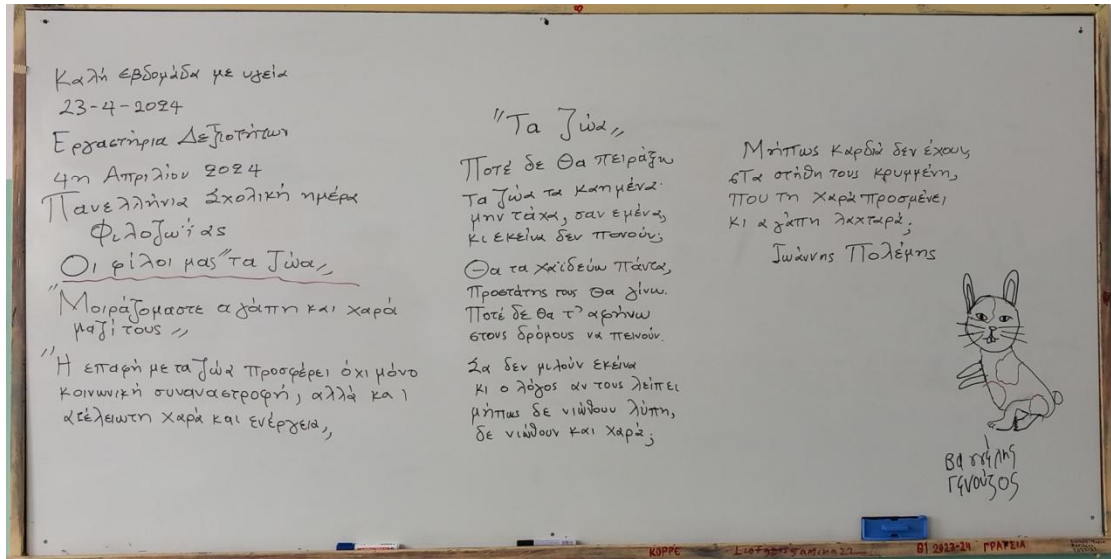 Καλή εβδομάδα με υγεία
23-4-2024
Εργαστήρια Δεξιοτήτων
4η Απριλίου 2024
Πανελλήνια Σχολική ημέρα
Φιλοζωΐας
Οι φίλοι μας "τα ζώα,,
"Μοιράζομαστε αγάπη και χαρά
μαζί τους,,
"Η επαφή με τα ζώα προσφέρει όχι μόνο
κοινωνική συναναστροφή, αλλά και
ατέλειωτη χαρά και ενέργεια,,
"Τα ζώα,,
Ποτέ δε θα πειράξω
τα ζώα τα καημένα·
μην τάχα, σαν εμένα,
κι εκείνα δεν πονούν;
Θα τα χαϊδεύω πάντα,
προστάτης τους θα γίνω.
Ποτέ δε θα τ' αφήνω
στους δρόμους να πεινούν.
Σα δεν μιλούν εκείνα
κι ο λόγος αν τους λείπει
μήπως δε νιώθουν λύπη,
δε νιώθουν και χαρά;
Μήπως καρδιά δεν έχουν,
στα στήθη τους κρυμμένη,
που τη χαρά προσμένει
κι αγάπη λαχταρά;
Ιωάννης Πολέμης
Βαγγέλης
Γενούζος
ΚΟΡΡΕ
B1 2023-24 ΓΡΑΨΕΙΑ